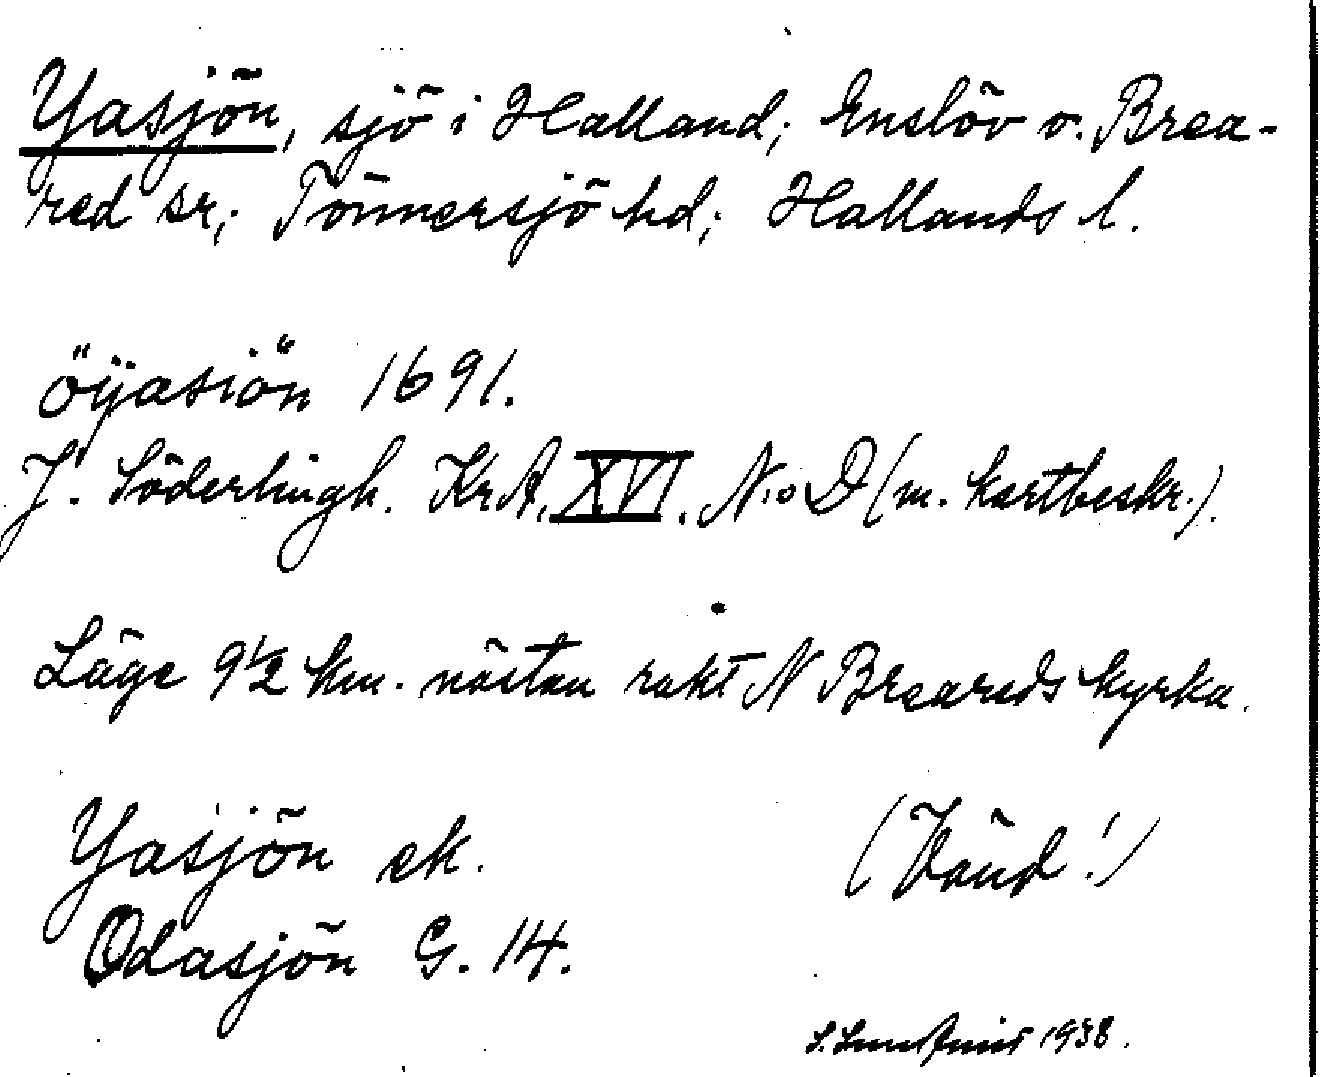 Yasjön, sjö i Halland; Enslöv o. Brea-
red sr; Tönnersjö hd; Hallands l.
öÿasiön 1691.
J. Söderlingh. KrA. XVI. N:o D (m. kartbeskr.).
Läge 9 1/2 km. nästan rakt N Breareds kyrka.
Yasjön ek.
(Vänd!)
Odasjön G. 14.
1938.